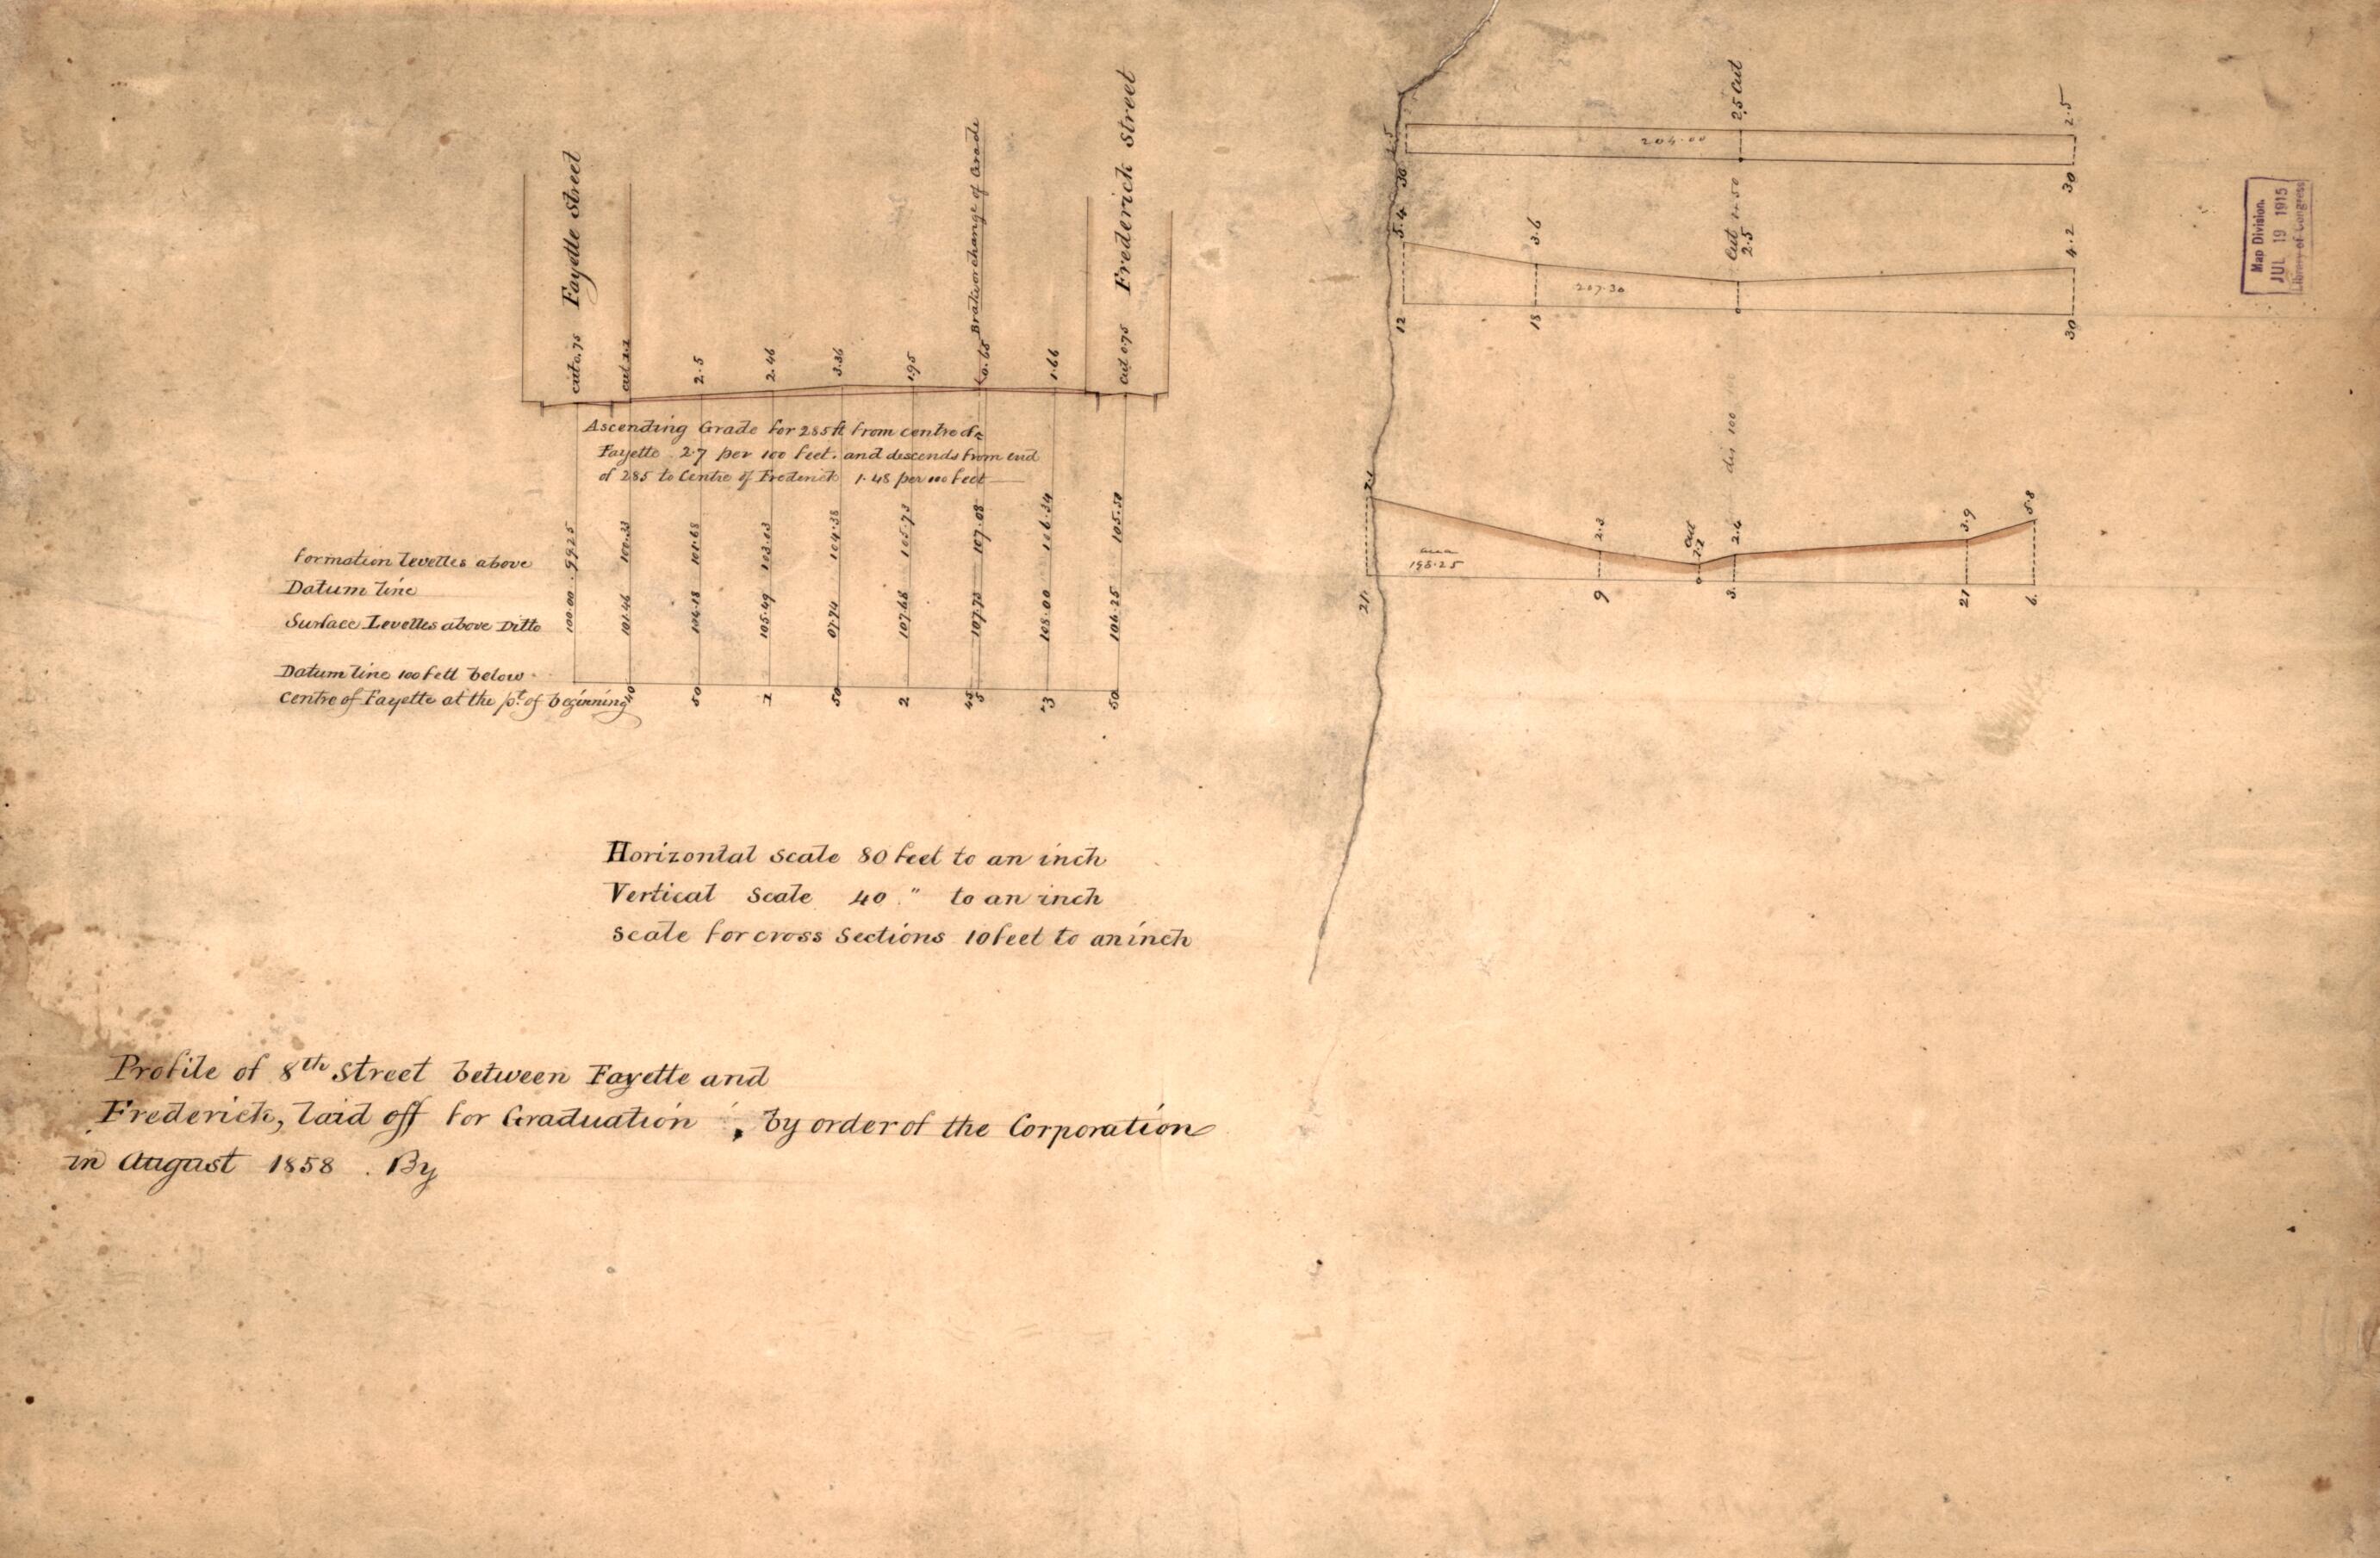 Fayette Street
Frederick Street
cut 0.75
cut 2.2
2.5
2.46
3.36
1.95
0.65
change of Grade
1.66
cut 0.75
Ascending Grade for 285 ft from centre of
Fayette 2.7 per 100 feet. and descends from end
of 285 to Centre of Frederick 1.48 per 100 feet
Formation Levelles above
Datum line
99.25
100.33
101.68
103.03
104.38
105.73
107.08
106.34
105.50
Surface Levelles above Ditto
100.00
104.18
105.49
07.74
107.68
107.73
108.00
106.25
Datum line 100 fett below
centre of Fayette at the pt. of beginning
40
50
1
50
2
45
5
3
50
Horizontal scale 80 feet to an inch
Vertical Scale 40 " to an inch
Scale for cross Sections 10 feet to an inch
Profile of 8th Street between Fayette and
Frederick, laid off for Graduation, by order of the Corporation
in August 1858 . By
2.5 Cut
2.5
204.00
30
30
5.4
3.6
Cut
2.5
4.2
207.30
12
18
30
dis 100
2.3
cut
2.2
2.4
3.9
5.8
area
198.25
21
9
3
21
6
Map Division.
JUL 19 1915
Library of Congress